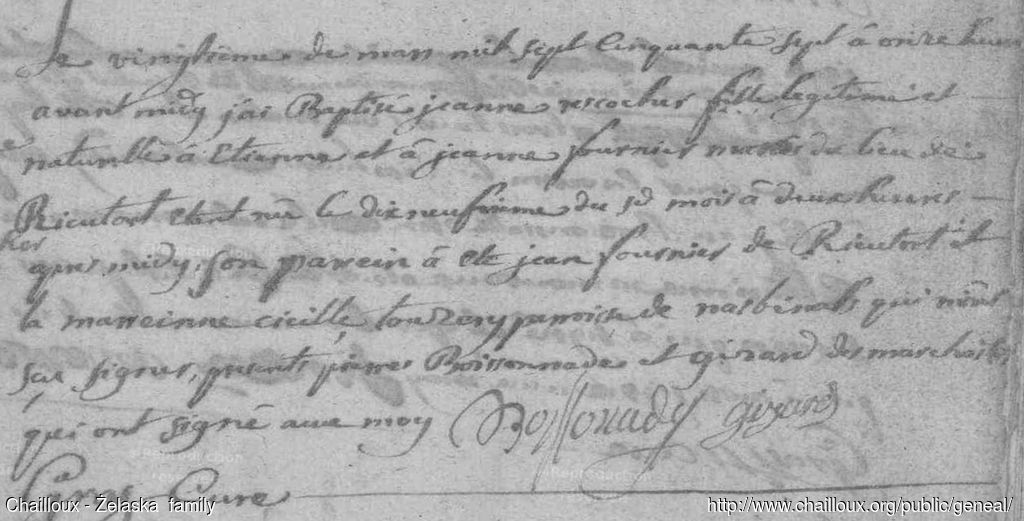 Le vingtieme de mars mil sept cinquante sept â onze heures
avant midy j'ai Baptisé jeanne rescoctus fille legitime et
naturelle â Etienne et â jeanne fournier mariés du lieu de
Rieutort etent née le dixneufvieme du sd mois â deux heures
apres midy. son parrein â eté jean fournier de Rieutort et
la marreinne cicille parroisse de nasbinals qui n'ont
sçu signer, presents pierres Boissonnade et girard des
qui ont signé avec moy Boissonady girard
Curé
Chailloux - Żelaska family
http://www.chailloux.org/public/geneal/